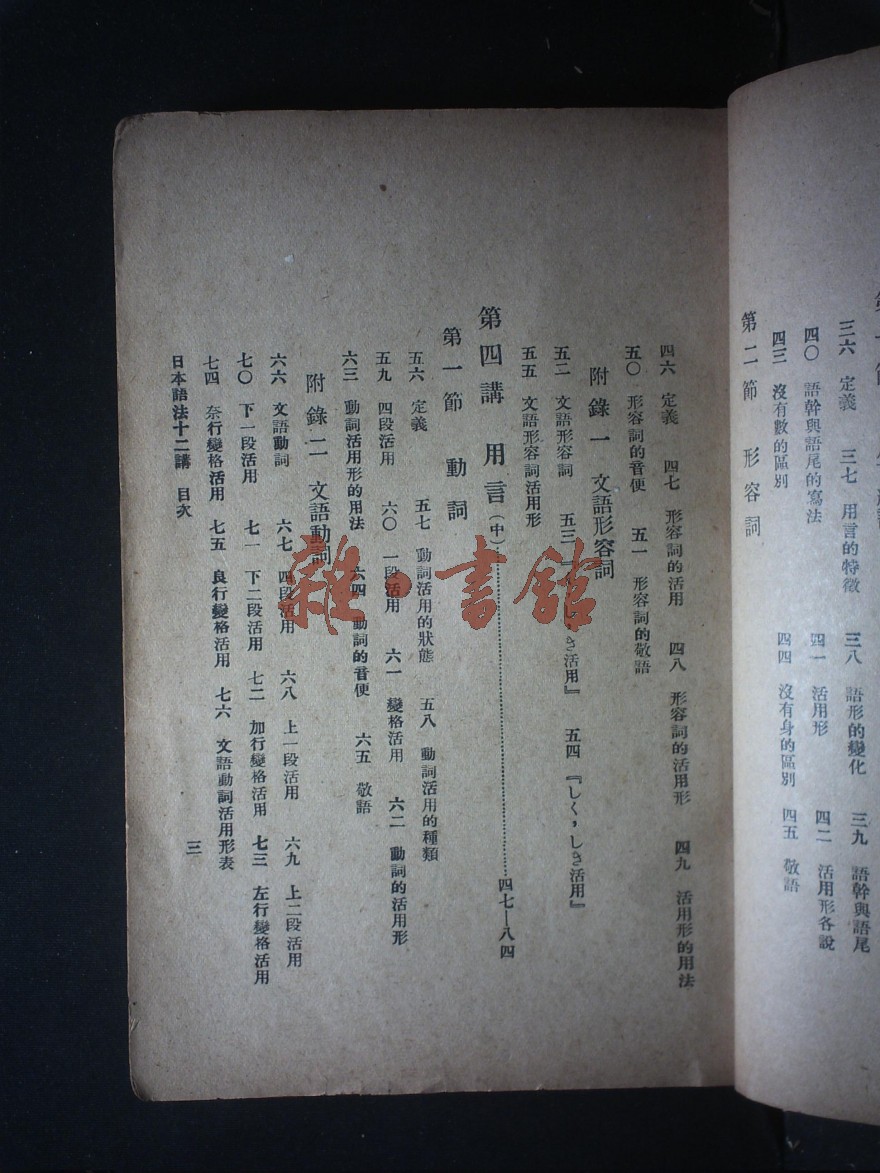 三六 定義 三七 用言的特徵 三八 語形的變化 三九 語幹與語尾
四〇 語幹與語尾的寫法 四一 活用形 四二 活用形各說
四三 沒有數的區別 四四 沒有身的區別 四五 敬語
第二節 形容詞
四六 定義 四七 形容詞的活用 四八 形容詞的活用形 四九 活用形的用法
五〇 形容詞的音便 五一 形容詞的敬語
附錄一 文語形容詞
五二 文語形容詞 五三 き活用』 五四 『しく，しき活用』
五五 文語形容詞活用形
第四講 用言（中）……四七—八四
第一節 動詞
五六 定義 五七 動詞活用的狀態 五八 動詞活用的種類
五九 四段活用 六〇 一段活用 六一 變格活用 六二 動詞的活用形
六三 動詞活用形的用法 六四 動詞的音便 六五 敬語
附錄二 文語動詞
六六 文語動詞 六七 四段活用 六八 上一段活用 六九 上二段活用
七〇 下一段活用 七一 下二段活用 七二 加行變格活用 七三 左行變格活用
七四 奈行變格活用 七五 良行變格活用 七六 文語動詞活用形表
日本語法十二講 目次
三
雜·書館